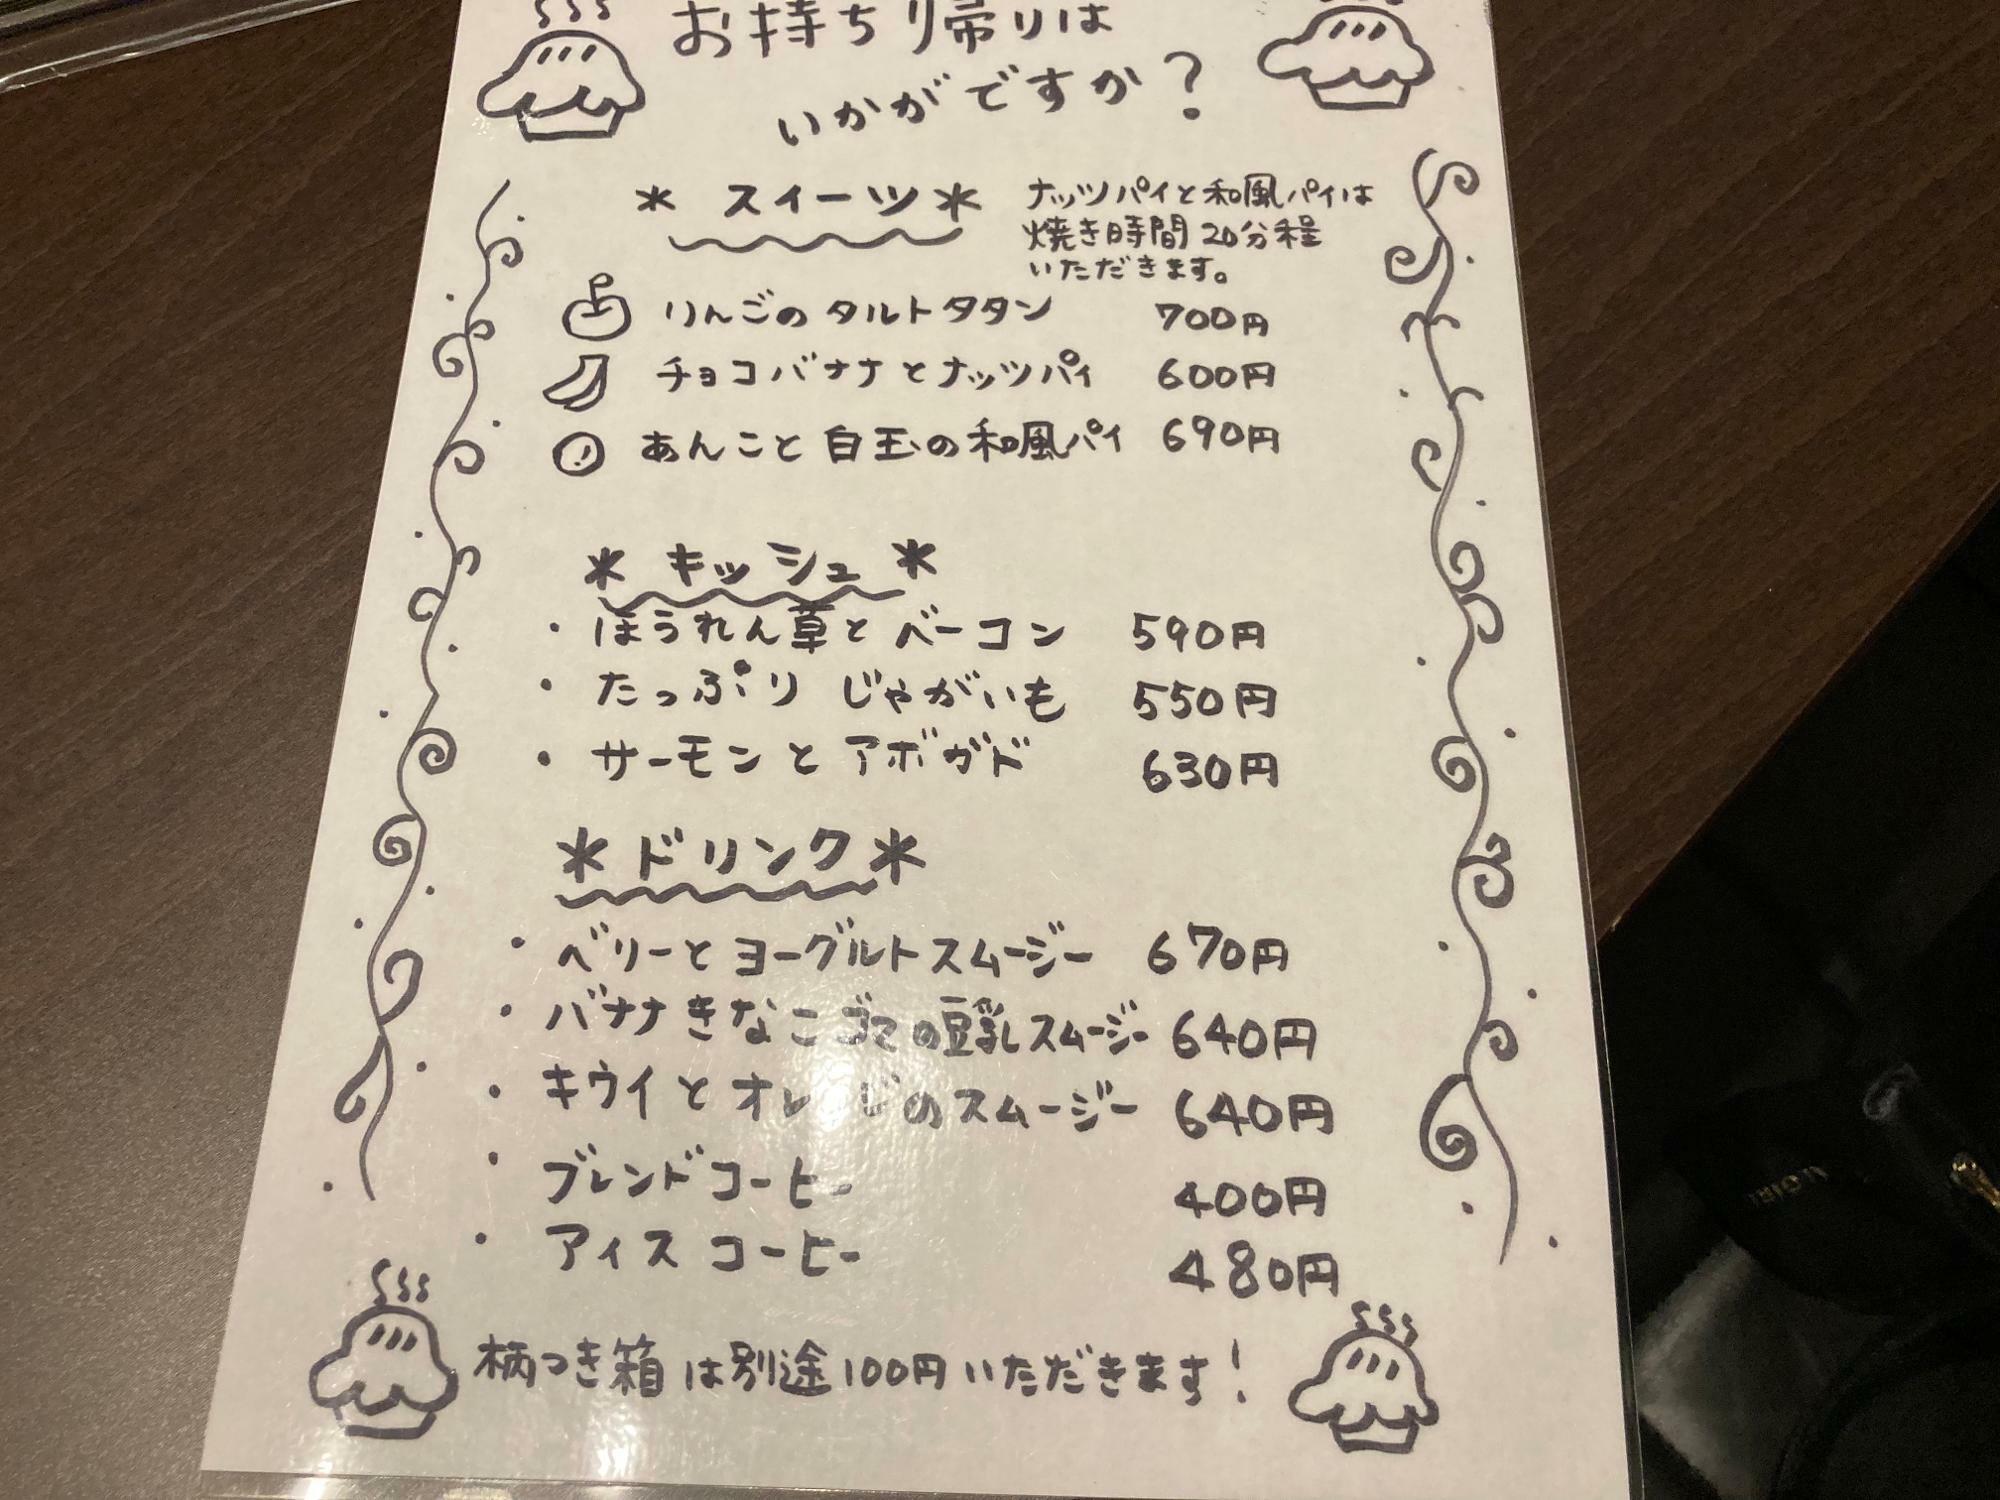 お持ち帰りは
いかがですか?
* スイーツ *
ナッツパイと和風パイは
焼き時間20分程
いただきます。
りんごのタルトタタン 700円
チョコバナナとナッツパイ 600円
あんこと白玉の和風パイ 690円
* キッシュ *
・ほうれん草とベーコン 590円
・たっぷりじゃがいも 550円
・サーモンとアボガド 630円
* ドリンク *
・ベリーとヨーグルトスムージー 670円
・バナナきなこごまの豆乳スムージー 640円
・キウイとオレンジのスムージー 640円
・ブレンドコーヒー 400円
・アイスコーヒー 480円
柄つき箱は別途100円いただきます!